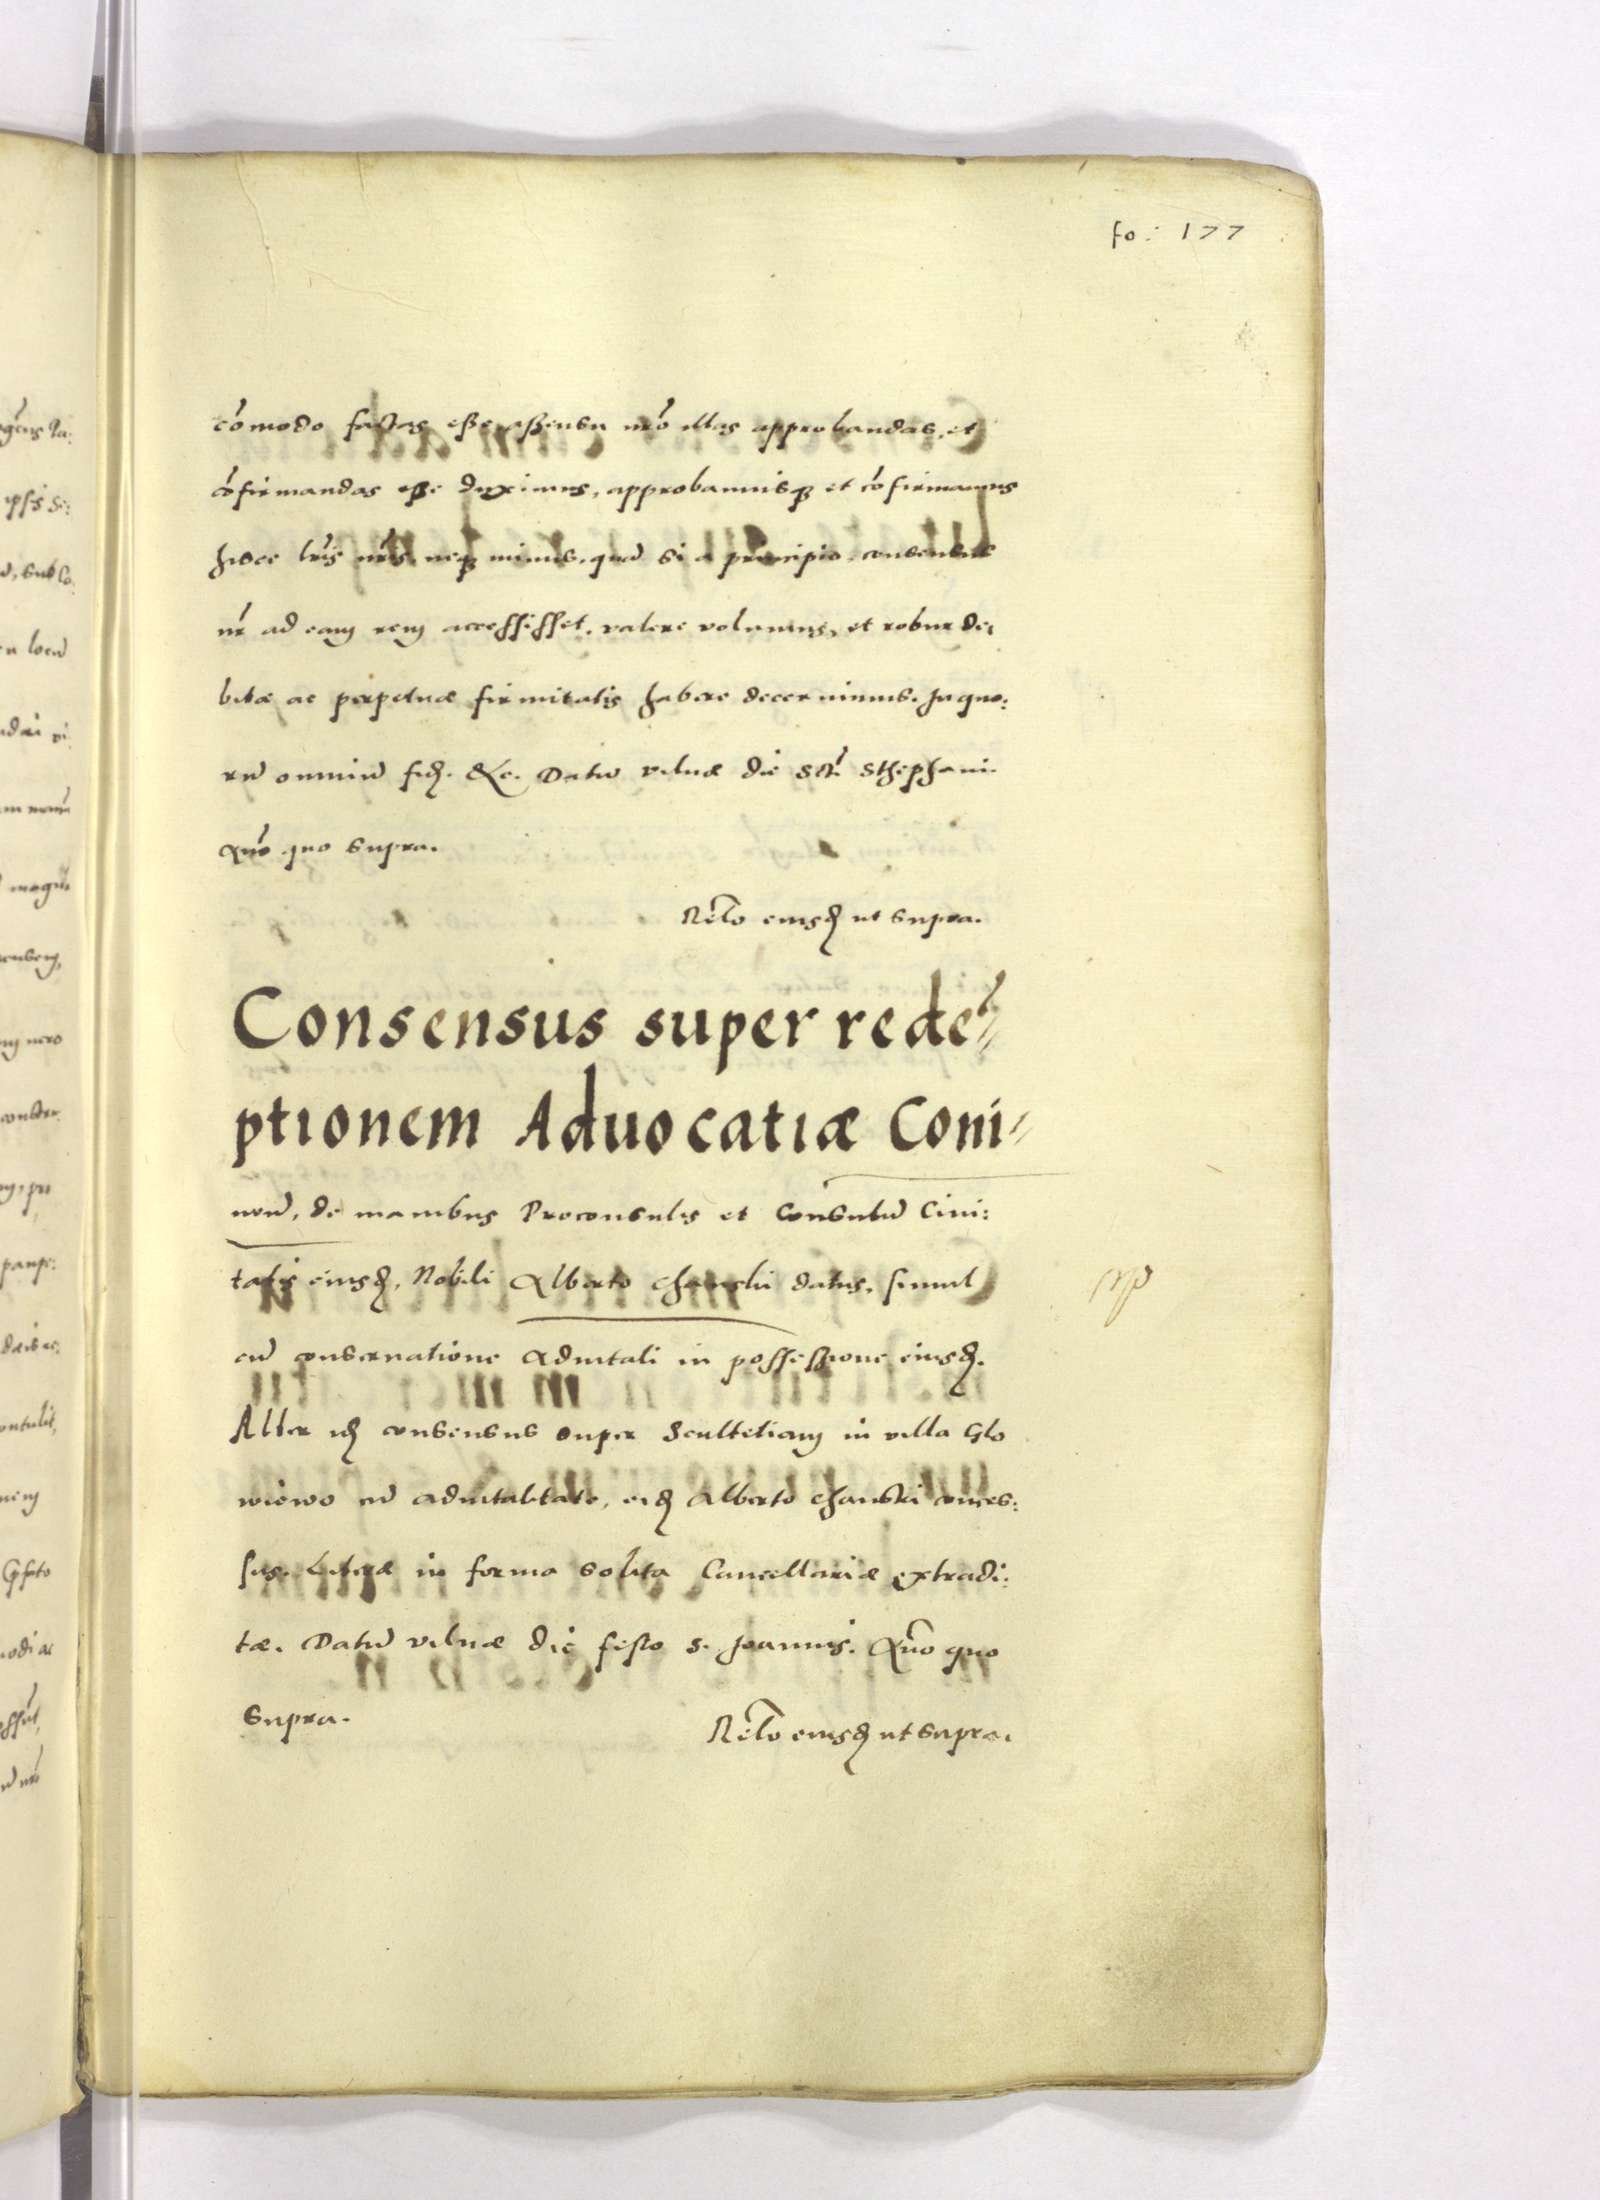 fo: 177
cōmodo factas esse assensu nrō illas approbandas, et
cōfirmandas esse duximus, approbamusq3 et cōfirmamus
hisce lrīs nrīs, neq3 minus, quā si a principio consensus
nr̄ ad eam rem accessisset, valere volumus, et robur de:
bitæ ac perpetuæ firmitatis habere decernimus. In quo:
rū omniū fid̄. &c. Datū vilnæ die Sctī Sthephani.
Anō quo supra.
Relō eiusd̄ ut supra.
Consensus super redē=
ptionem Aduocatiæ Coni=
nen̄, de manibus Proconsulis et Consulū Ciui:
tatis eiusd̄, Nobili Alberto Chanski datus, simul
cū conseruatione aduitali in possessione eiusd̄.
Alter it̄ consensus super Scultetiam in villa Glo
wiewo cū aduitalitate, eid̄ Alberto Chanski conces:
sus. Literæ in forma solita Cancellariæ extradi:
tæ. Datū vilnæ die festo S. Joannis. Anō quo
supra.
Relō eiusd̄ ut supra.